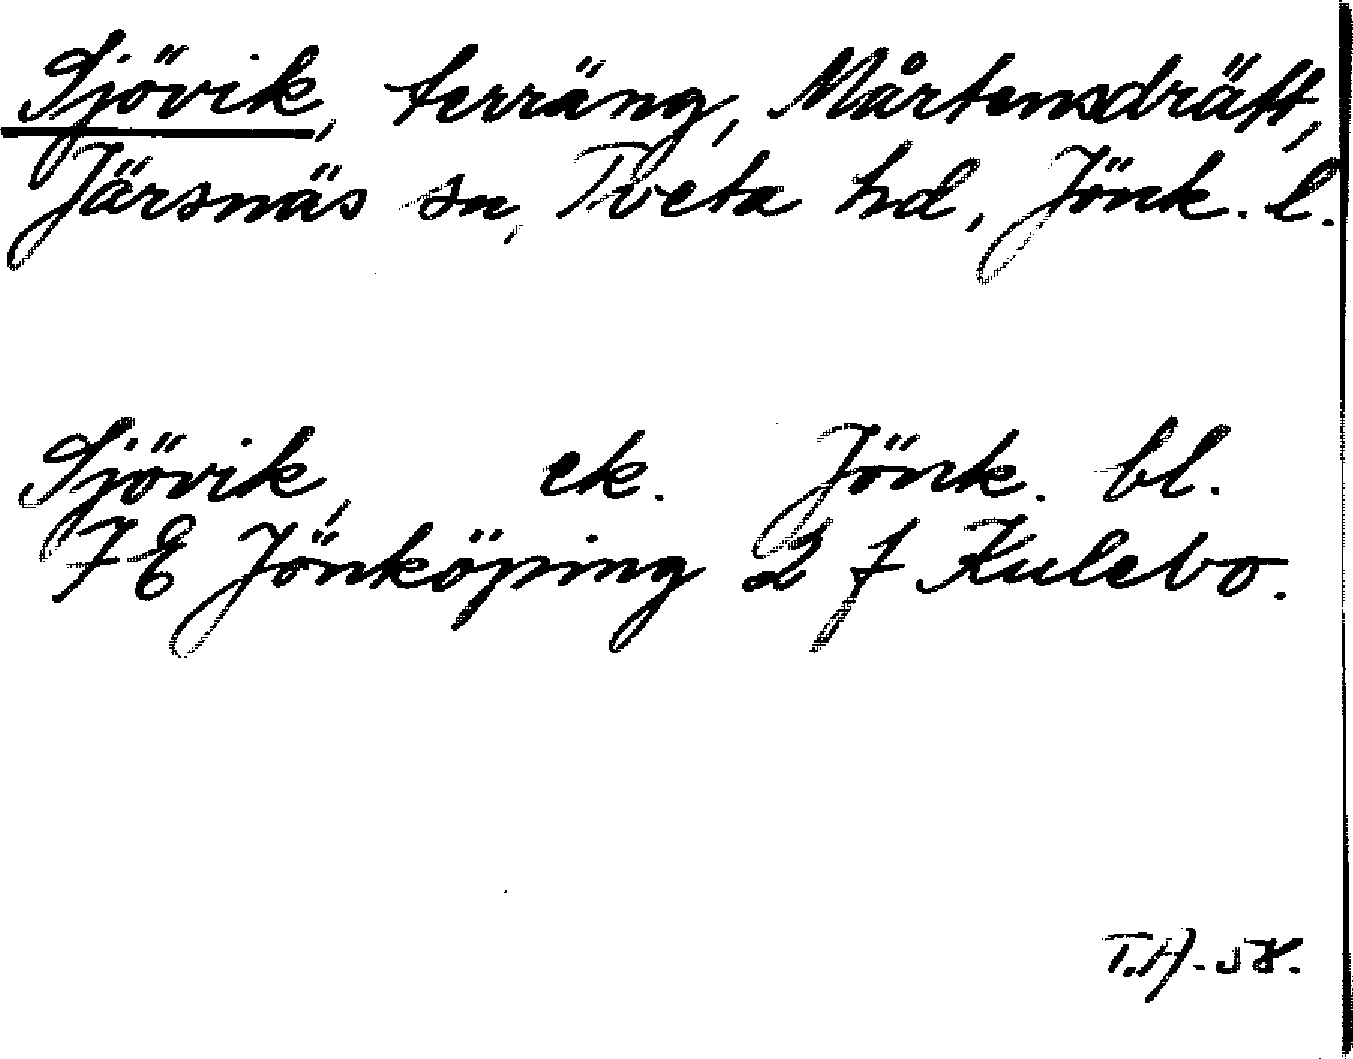 Sjövik, terräng, Mårtensdrätt,
Järsnäs sn, Tveta hd, Jönk. l.
Sjövik, ek. Jönk. bl.
7E Jönköping 2 f Kulebo.
T.H. -58.